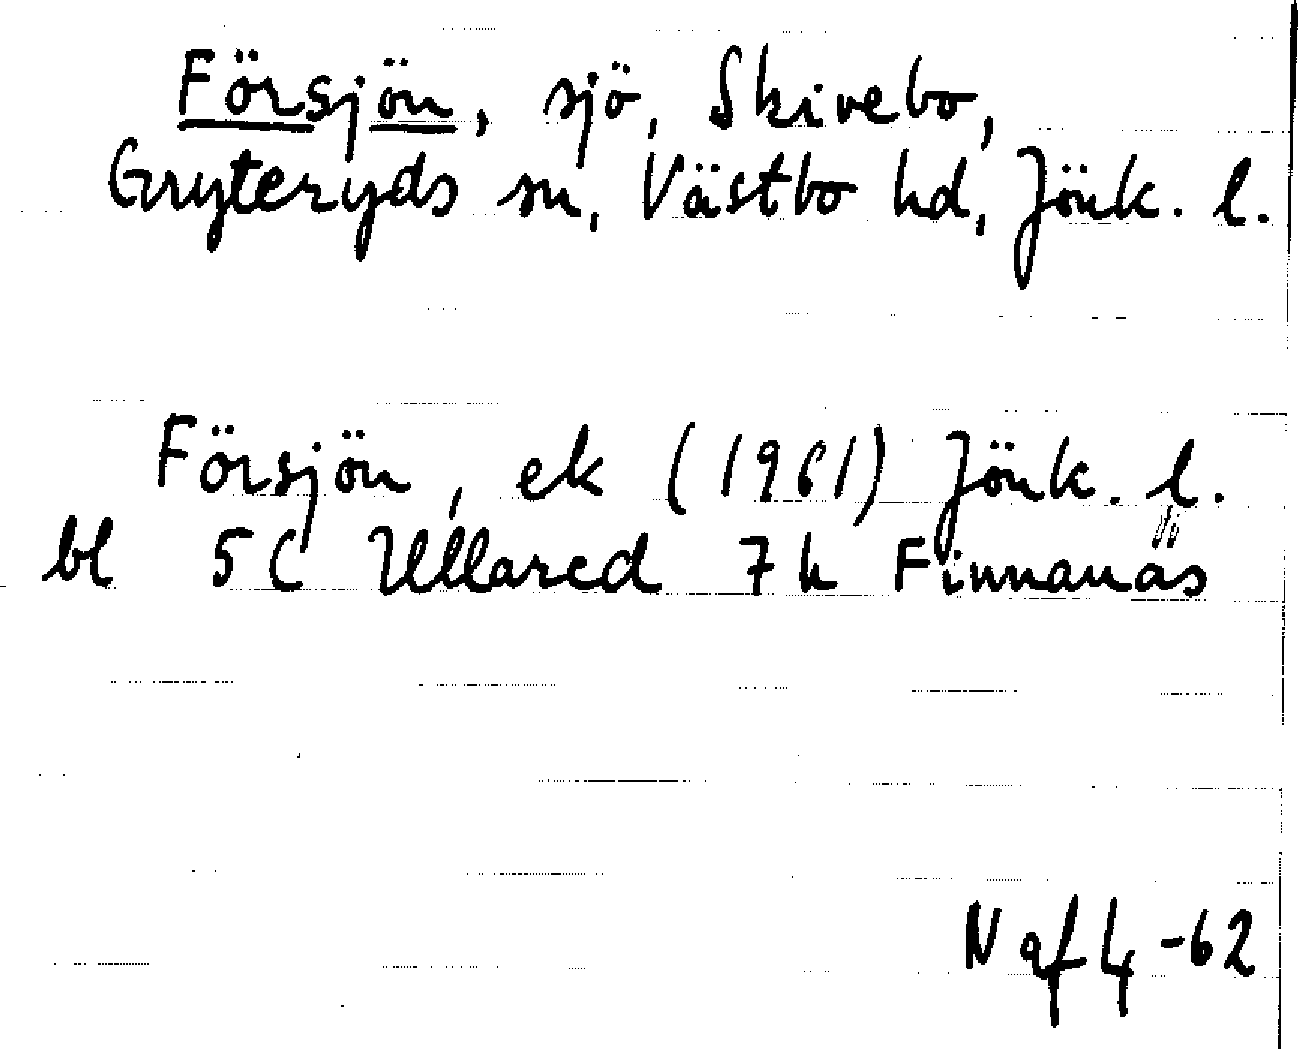 Försjön, sjö, Skivebo,
Gryteryds sn, Västbo hd, Jönk. l.
Försjön, ek (1961) Jönk. l.
bl 5C Ullared 7h Finnanäs
N qf 4-62